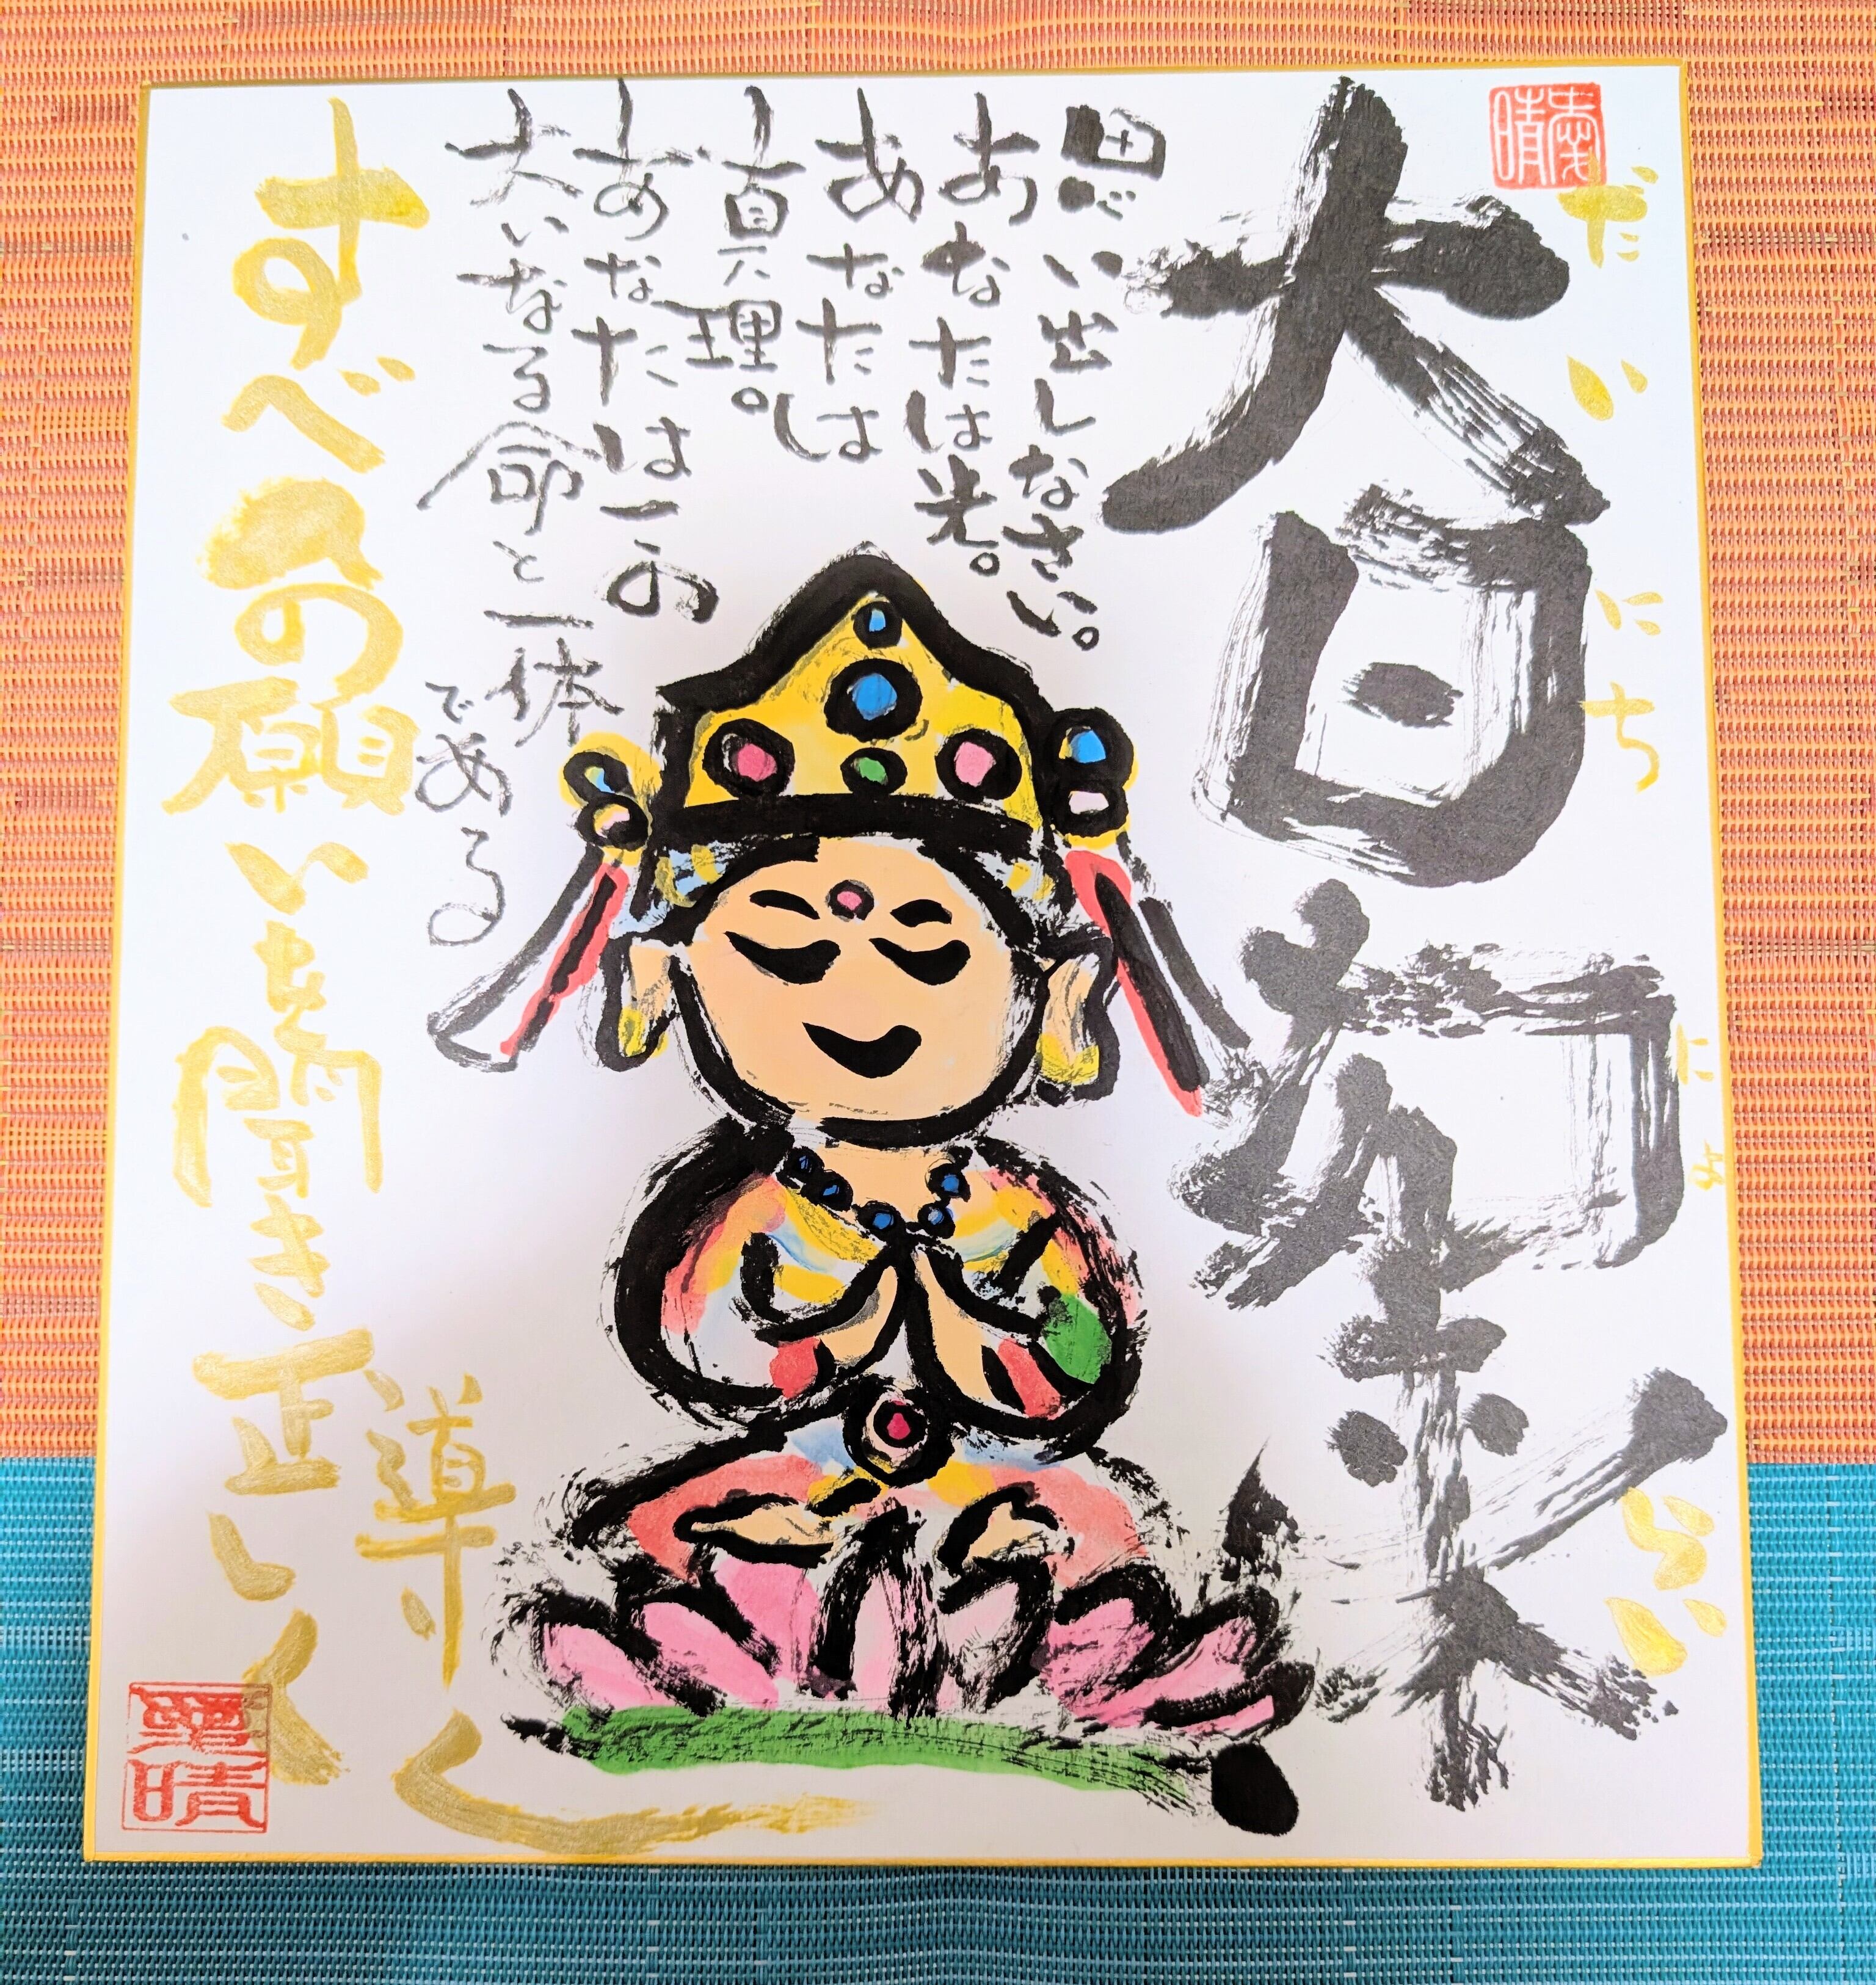 大日如来
だいにちにょらい
思い出しなさい。
あなたは光。
あなたは
真理。
あなたはこの
大いなる命と一体
である
すべての願いを聞き正しく
導く